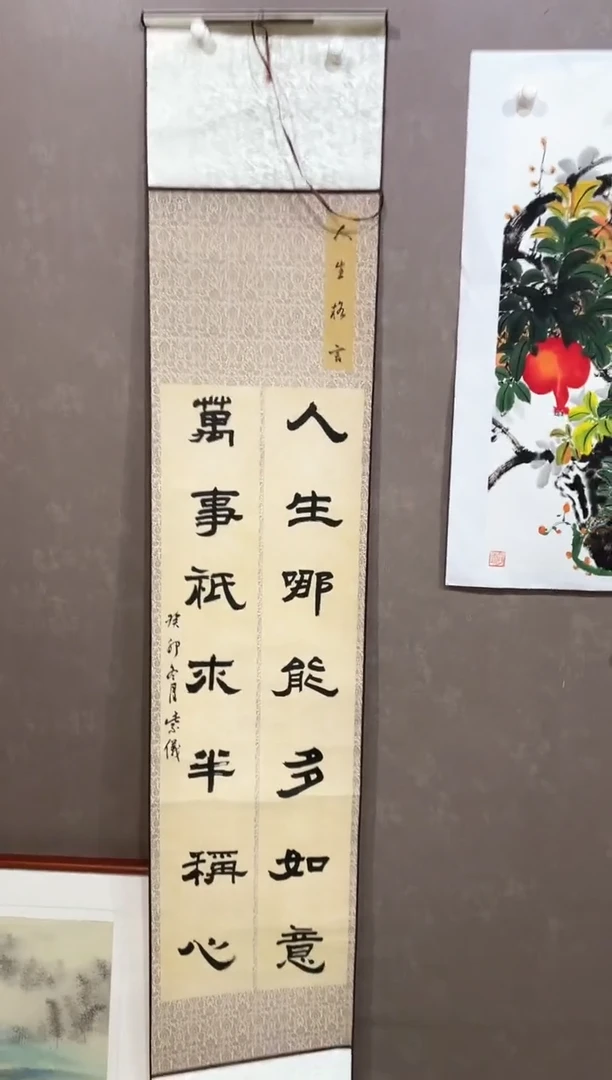 人生格言
人生哪能多如意
萬事祇求半稱心
癸卯冬月紫儀